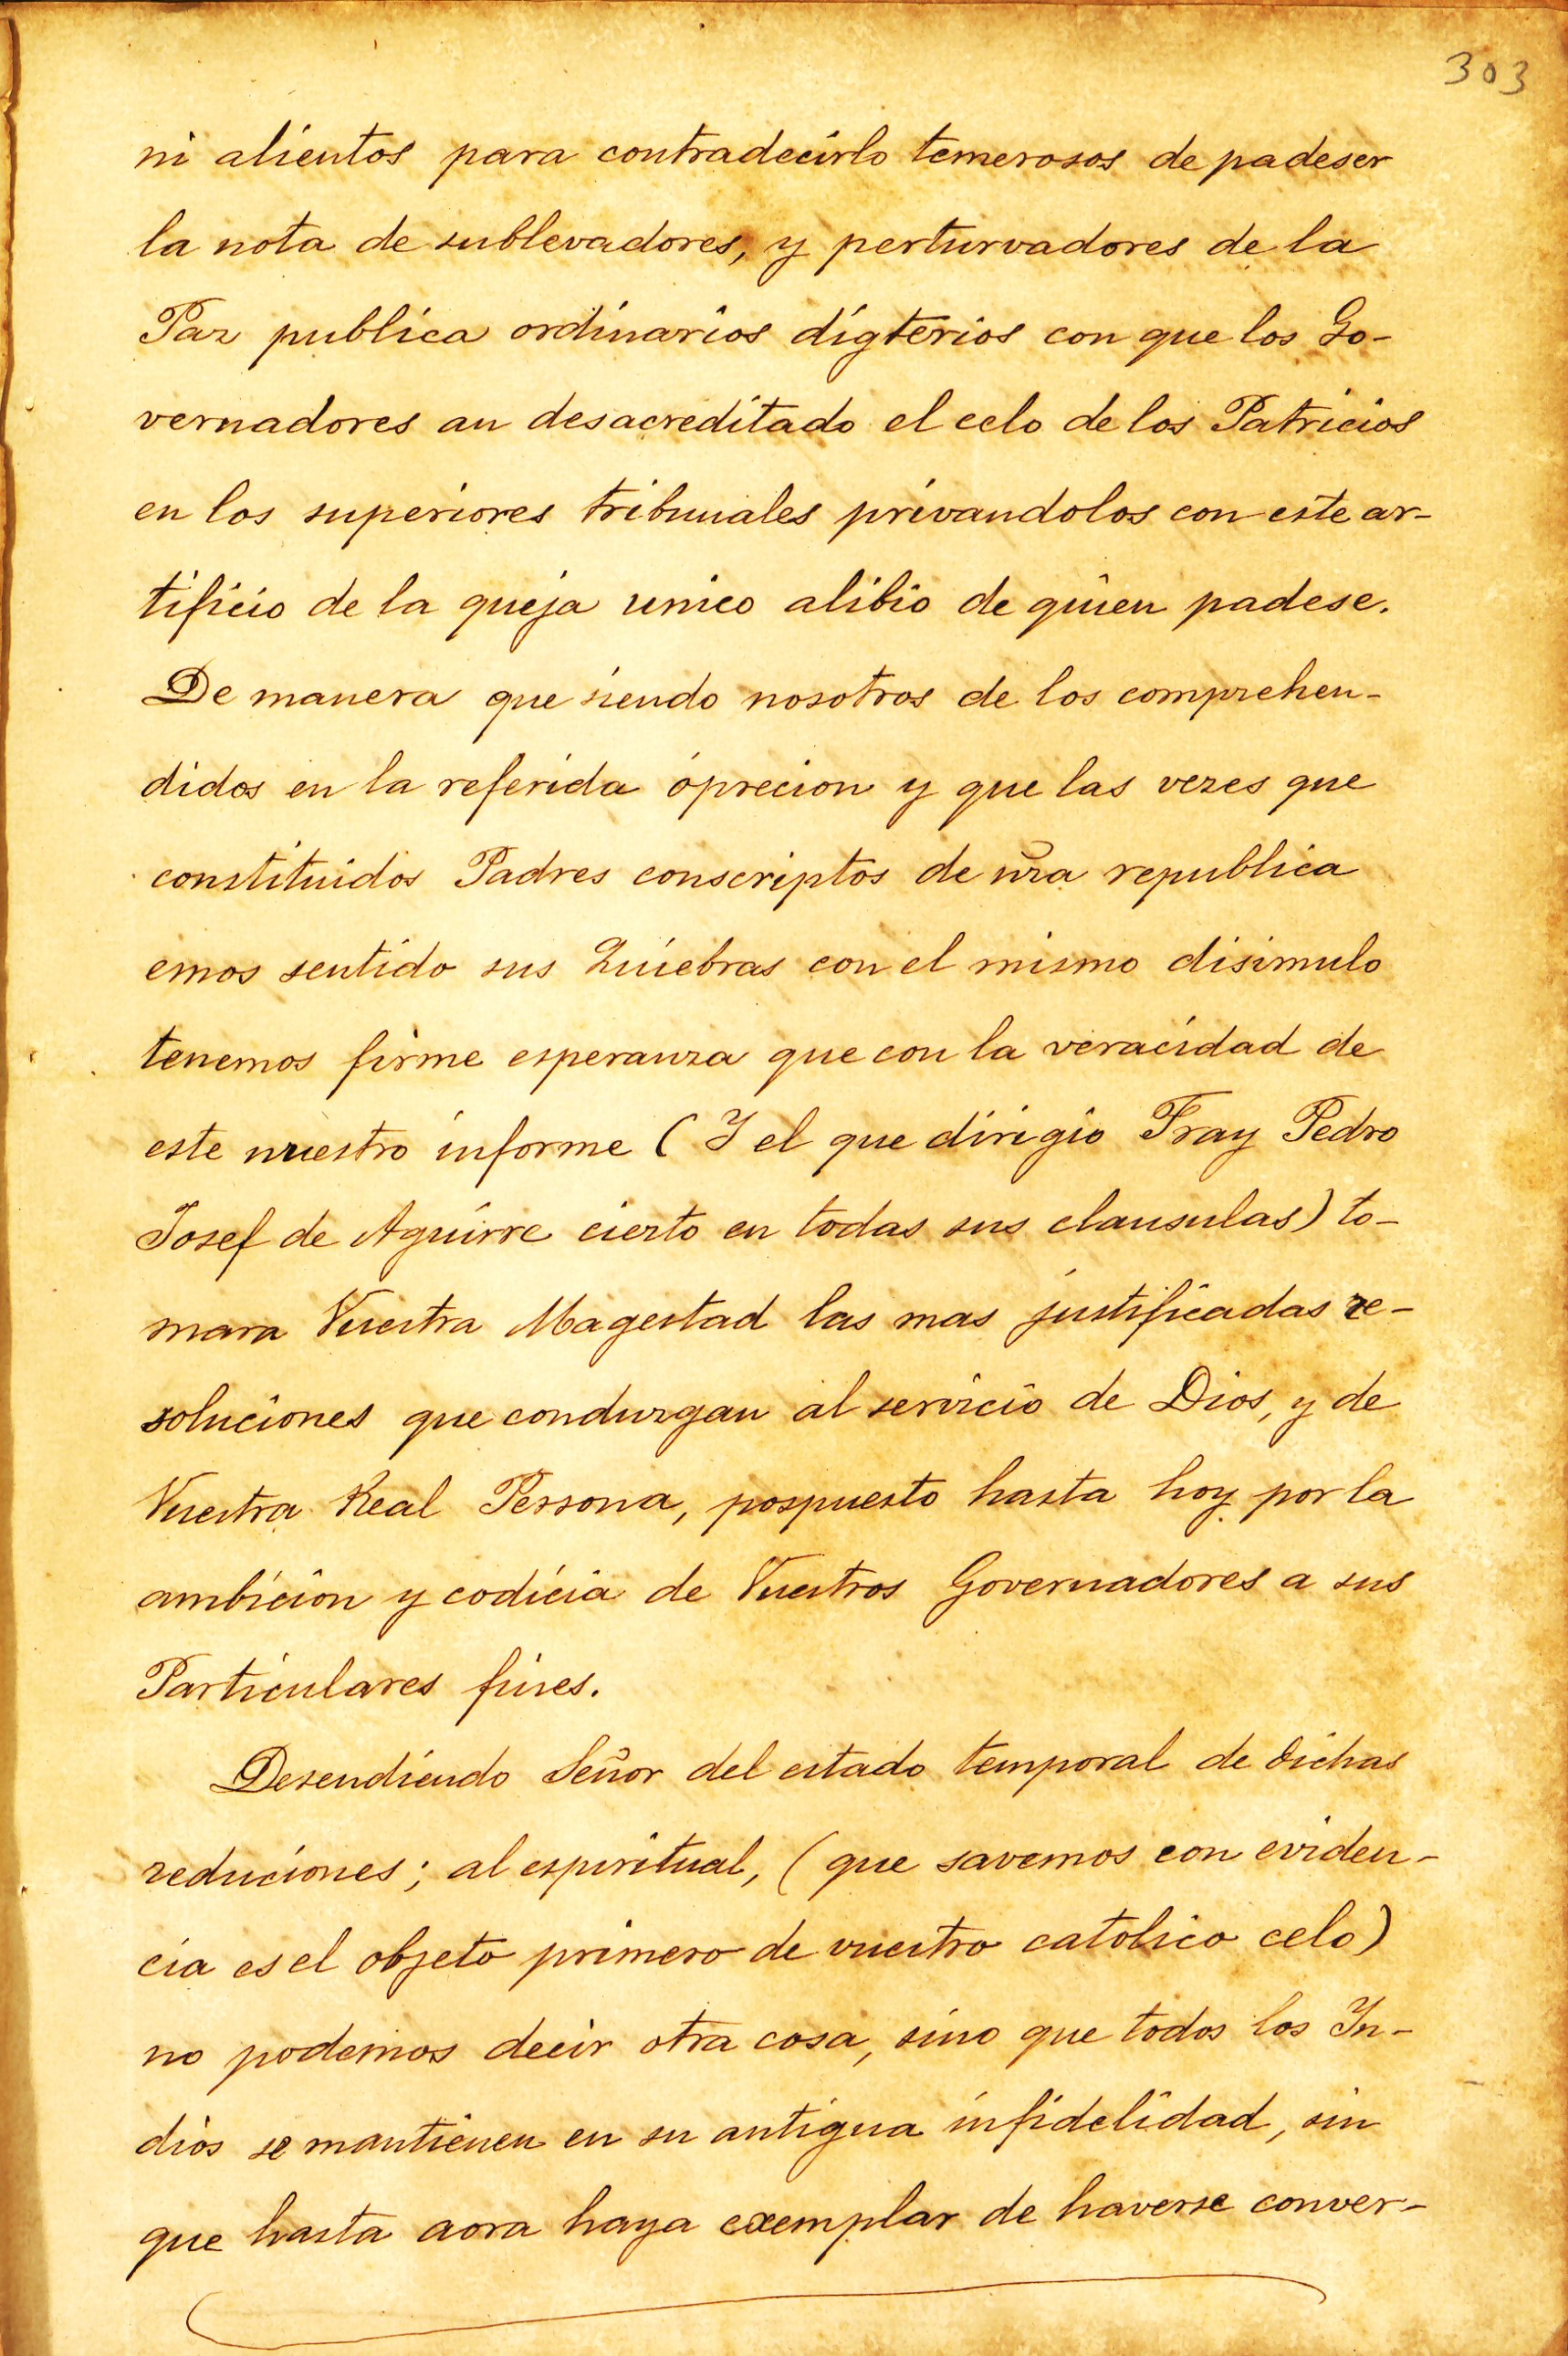 303
ni alientos para contradecirlo temerosos de padeser
la nota de sublevadores, y perturvadores de la
Paz publica ordinarios digterios con que los Go-
vernadores an desacreditado el celo de los Patricios
en los superiores tribunales privandolos con este ar-
tificio de la queja unico alibio de quien padese.
De manera que siendo nosotros de los comprehen-
didos en la referida óprecion y que las vezes que
constituidos Padres conscriptos de nr̃a republica
emos sentido sus Quiebras con el mismo disimulo
tenemos firme esperanza que con la veracidad de
este nuestro informe (Y el que dirigio Fray Pedro
Josef de Aguirre cierto en todas sus clausulas) to-
mara Vuestra Magestad las mas justificadas re-
soluciones que conduzgan al servicio de Dios, y de
Vuestra Real Persona, pospuesto hasta hoy por la
ambicion y codicia de Vuestros Governadores a sus
Particulares fines.
Desendiendo Señor del estado temporal de dichas
reduciones; al espiritual, (que savemos con eviden-
cia es el objeto primero de vuestro catolico celo)
no podemos decir otra cosa, sino que todos los In-
dios se mantienen en su antigua infidelidad, sin
que hasta aora haya exemplar de haverse conver-